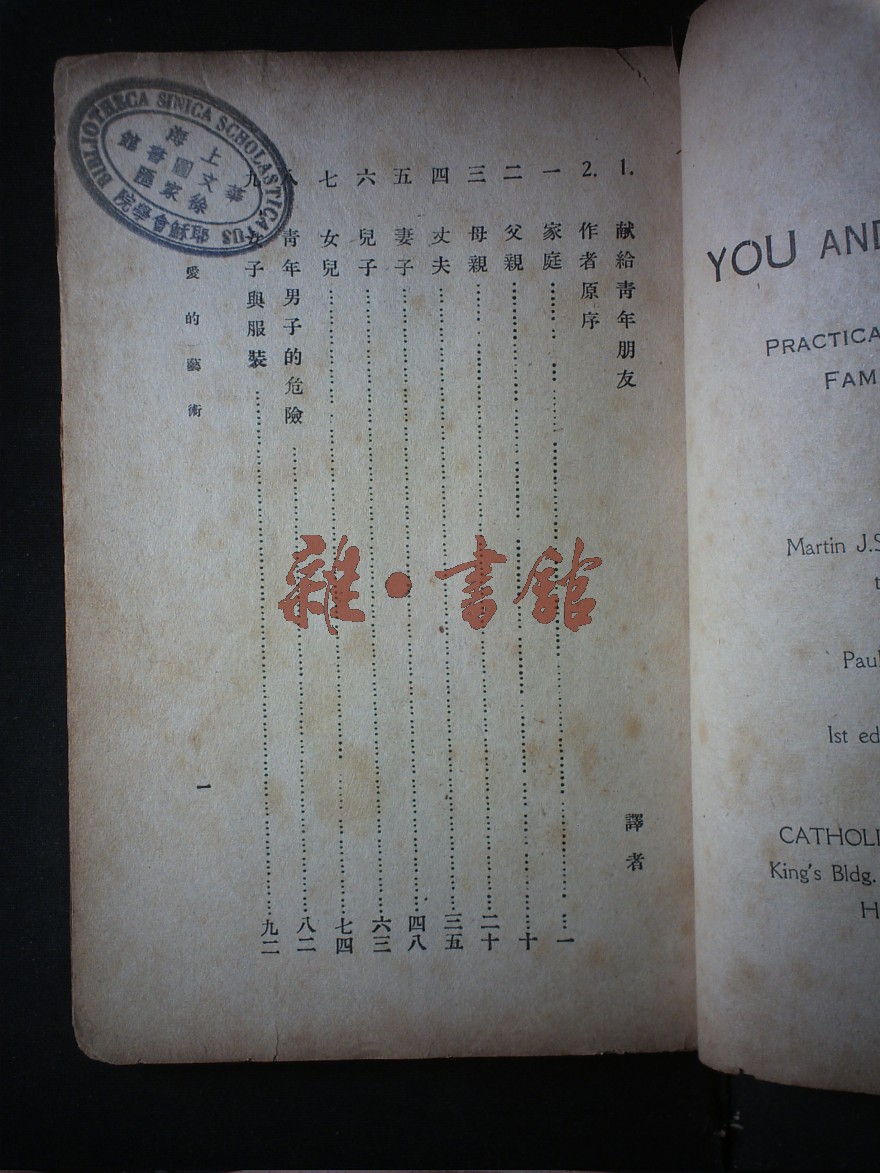 1. 献給青年朋友 譯者
2. 作者原序
一 家庭 一
二 父親 十
三 母親 二十
四 丈夫 三五
五 妻子 四八
六 兒子 六三
七 女兒 七四
八 青年男子的危險 八二
九 女子與服裝 九二
愛的藝術 一
BIBLIOTHECA SINICA SCHOLASTICATUS
上海
華文圖書館
徐家匯
耶穌會學院
雜·書館
YOU AND
PRACTICA
FAM
Martin J.S
t
Paul
Ist ed
CATHOLI
King's Bldg.
H